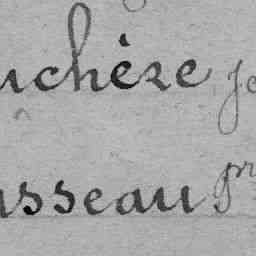 uchère je
usseau pr